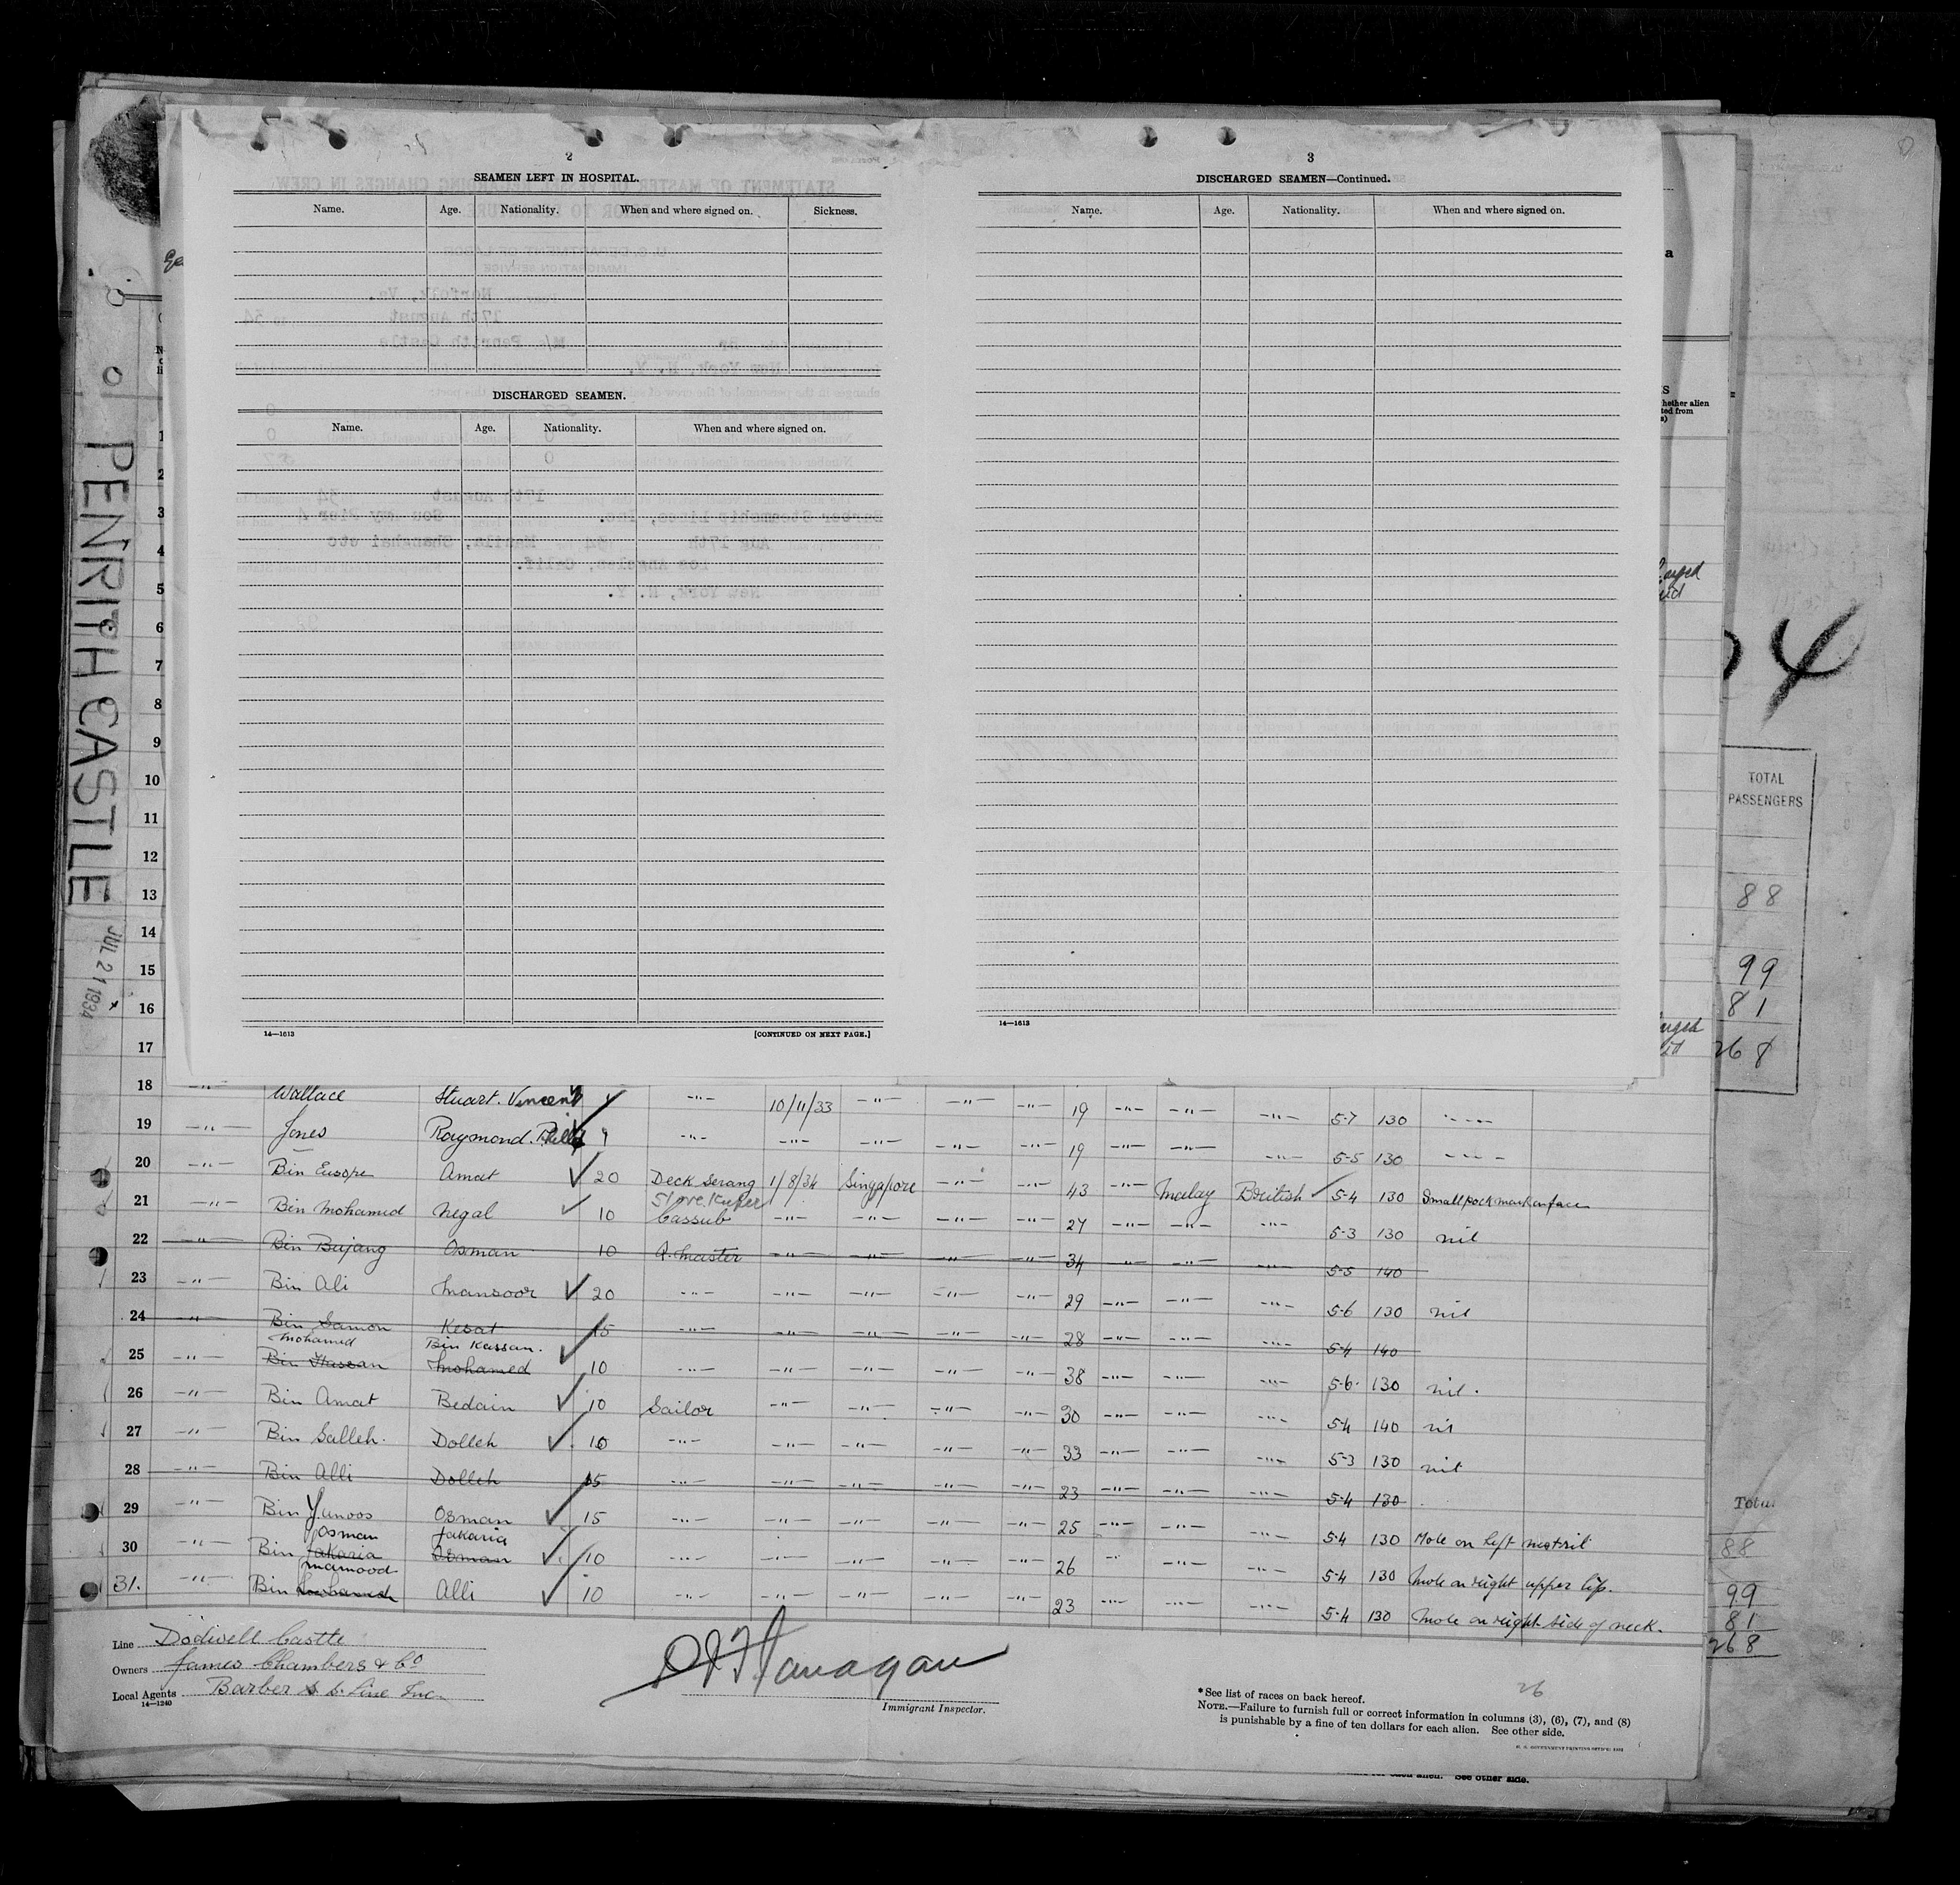 PENRITH CASTLE
JUL 21 1934
2
SEAMEN LEFT IN HOSPITAL.
Name. Age. Nationality. When and where signed on. Sickness.
DISCHARGED SEAMEN.
Name. Age. Nationality. When and where signed on.
14—1613 [CONTINUED ON NEXT PAGE.]
3
DISCHARGED SEAMEN—Continued.
Name. Age. Nationality. When and where signed on.
14—1613
TOTAL
PASSENGERS
88
99
81
268
1
2
3
4
5
6
7
8
9
10
11
12
13
14
15
16
17
18 —"— Wallace Stuart. Vincent —"— 10/11/33 —"— —"— —"— 19 —"— —"— —"— 5-7 130 —"—
19 —"— Jones Raymond. —"— —"— —"— —"— —"— 19 —"— —"— —"— 5-5 130 —"—
20 —"— Bin Eusope Amat 20 Deck Serang 1/8/34 Singapore —"— —"— 43 —"— Malay British 5-4 130 Small pock mark on face
Store Keeper
21 —"— Bin Mohamed Negal 10 Cassub —"— —"— —"— —"— 27 —"— —"— —"— 5-3 130 nil
22 —"— Bin Bujang Osman 10 Q. Master —"— —"— —"— —"— 34 —"— —"— —"— 5-5 140
23 —"— Bin Ali Mansoor 20 —"— —"— —"— —"— —"— 29 —"— —"— —"— 5-6 130 nil
24 —"— Bin Samon Kesat 15 —"— —"— —"— —"— —"— 28 —"— —"— —"— 5-4 140
Mohamed Bin Kassan.
25 —"— Bin Hassan Mohamed 10 —"— —"— —"— —"— —"— 38 —"— —"— —"— 5-6 130 nil.
26 —"— Bin Amat Bedain 10 Sailor —"— —"— —"— —"— 30 —"— —"— —"— 5-4 140 nil
27 —"— Bin Salleh. Dolleh 10 —"— —"— —"— —"— —"— 33 —"— —"— —"— 5-3 130 nil
28 —"— Bin Alli Dolleh 15 —"— —"— —"— —"— —"— 23 —"— —"— —"— 5-4 130
29 —"— Bin Yunoos Osman 15 —"— —"— —"— —"— —"— 25 —"— —"— —"— 5-4 130 Mole on left nostril
Osman Jakaria
30 —"— Bin Jakaria Osman 10 —"— —"— —"— —"— —"— 26 —"— —"— —"— 5-4 130 Mole on right upper lip.
Mamood
31. —"— Bin Alli 10 —"— —"— —"— —"— —"— 23 —"— —"— —"— 5-4 130 Mole on right side of neck.
Total
88
99
81
268
Line Dodwell Castle
Owners James Chambers & Co
Local Agents Barber S. S. Line Inc.
14—1240
Flanagan
Immigrant Inspector.
26
*See list of races on back hereof.
NOTE.—Failure to furnish full or correct information in columns (3), (6), (7), and (8)
is punishable by a fine of ten dollars for each alien. See other side.
U. S. GOVERNMENT PRINTING OFFICE:
for each alien. See other side.